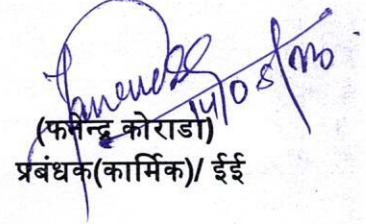 14/05/20
(फनेन्द्र कोराडो)
प्रबंधक(कार्मिक)/ ईई